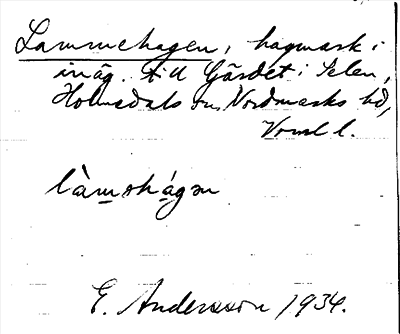 Lammehagen, hagmark i
inäg. till Gärdet i Selen,
Holmedals sn, Nordmarks hd,
Vrml l.
làmɘhágɘn
E. Andersson 1934.